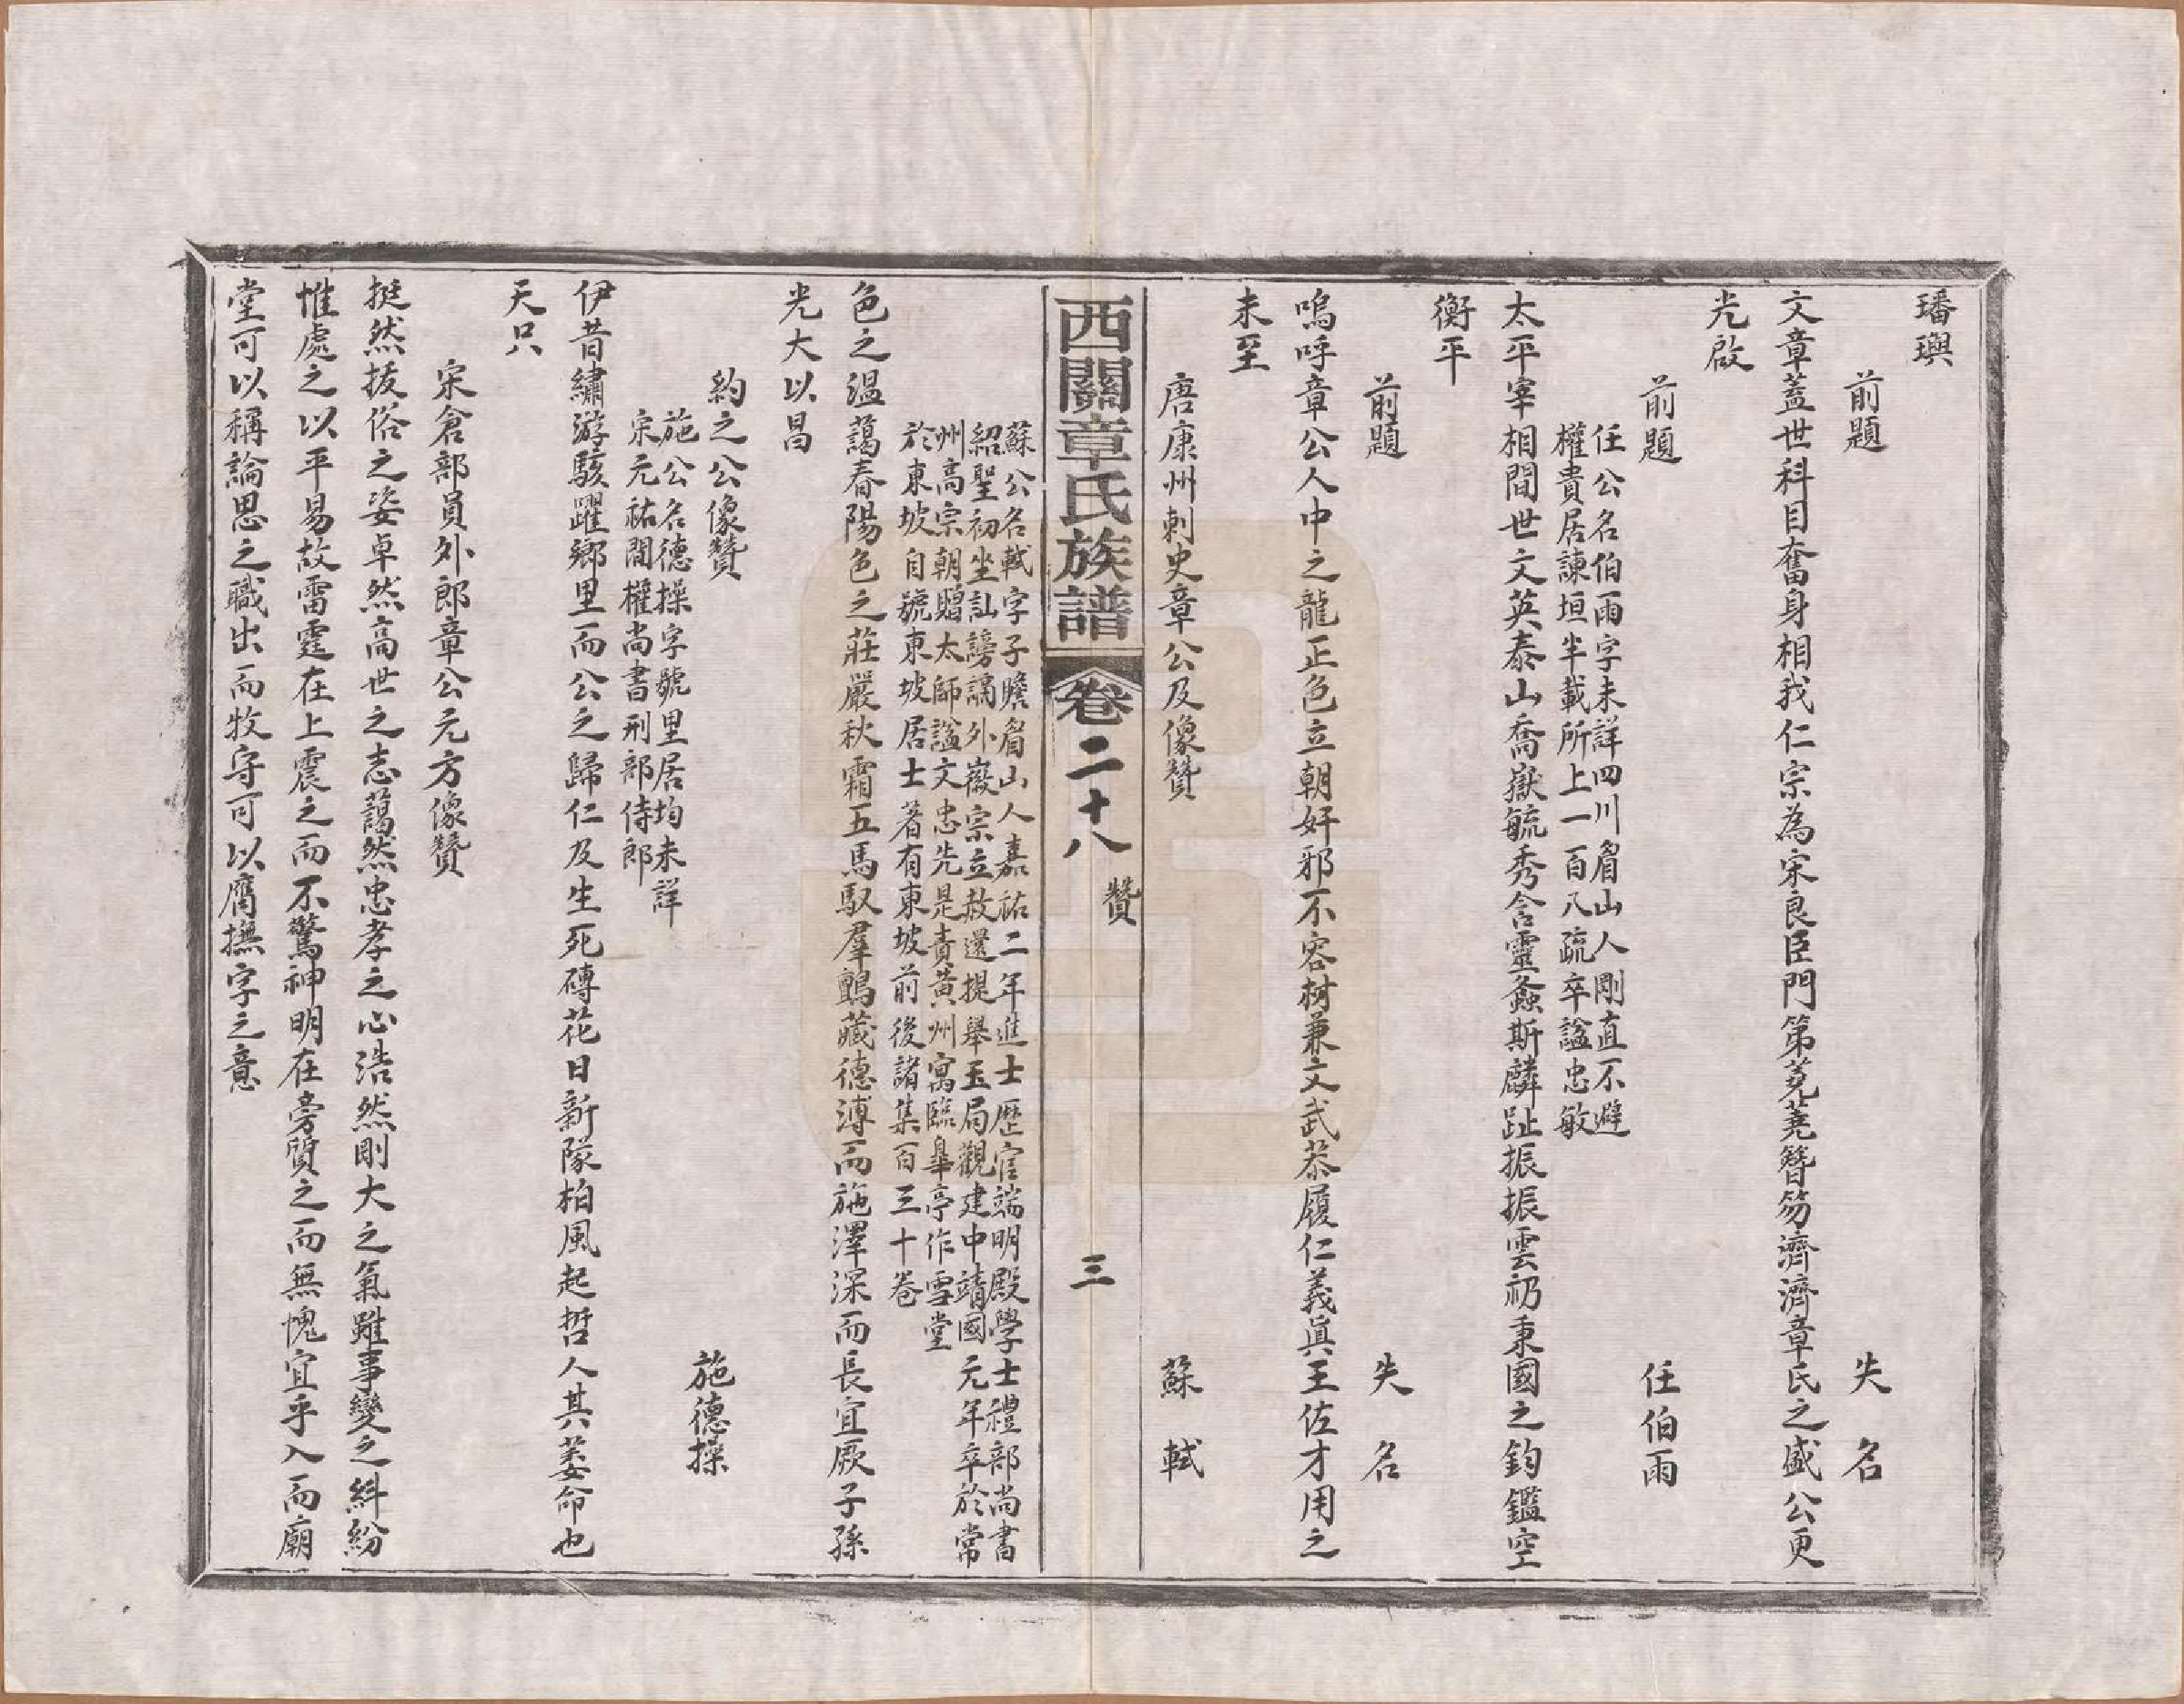 璠璵
前題
失名
文章蓋世科目奮身相我仁宗為宋良臣門第芄蕘簪笏濟濟章氏之盛公更
光啟
前題
任伯雨
任公名伯雨字未詳四川眉山人剛直不避
權貴居諫垣半載所上一百八疏卒諡忠敏
太平宰相間世文英泰山喬嶽毓秀含靈螽斯麟趾振振雲礽秉國之鈞鑑空
衡平
前題
失名
嗚呼章公人中之龍正色立朝奸邪不容材兼文武恭履仁義眞王佐才用之
未至
唐康州刺史章公及像贊
蘇軾
西關章氏族譜
卷二十八
贊
三
蘇公名軾字子瞻眉山人嘉祐二年進士歷官端明殿學士禮部尚書
紹聖初坐訕謗謫外徽宗立赦還提舉玉局觀建中靖國元年卒於常
州高宗朝贈太師諡文忠先是責黃州寓臨皋亭作雪堂
於東坡自號東坡居士著有東坡前後諸集百三十卷
色之溫藹春陽色之莊嚴秋霜五馬馭羣鸇藏德溥而施澤深而長宜厥子孫
光大以昌
約之公像贊
施德操
施公名德操字號里居均未詳
宋元祐間權尚書刑部侍郎
伊昔繡游駭躍鄉里而公之歸仁及生死磚花日新隊柏風起哲人其萎命也
天只
宋倉部員外郎章公元方像贊
挺然拔俗之姿卓然高世之志藹然忠孝之心浩然剛大之氣雖事變之糾紛
惟處之以平易故雷霆在上震之而不驚神明在旁質之而無愧宜乎入而廟
堂可以稱論思之職出而牧守可以膺撫字之意